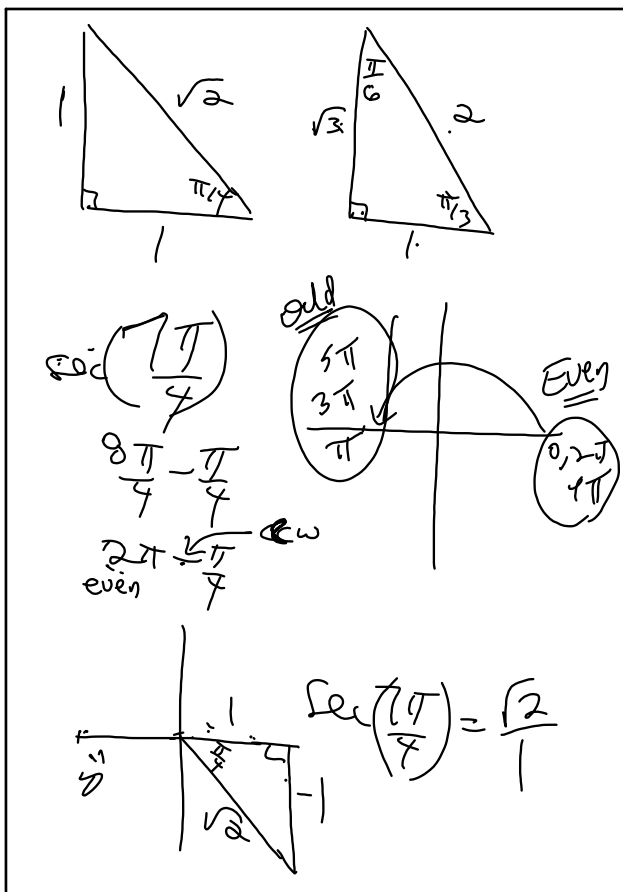 1 √2 π/4 1
π/6 √3 2 π/3 1
sec(7π/4)
8π/4 − π/4
2π − π/4
even
odd
5π
3π
π
Even
0, 2π
4π
1
π/4
√2
-1
Sec(7π/4) = √2/1